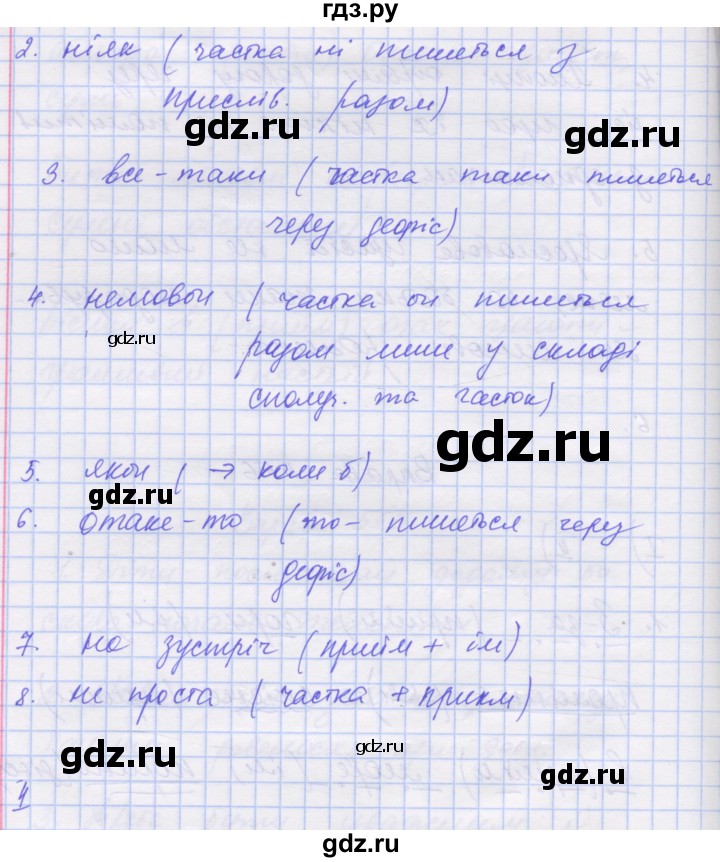 гдз.ру
2. ніяк ( частка ні пишеться з
прислів. разом)
gdz.ru
gdz.ru
3. все-таки ( частка таки пишеться
через дефіс)
4. немовби ( частка би пишеться
gdz.ru
разом лише у складі
сполуч. та часток)
gdz.ru
5. якби ( → коли б)
gdz.ru
6. отаке-то (то- пишеться через
дефіс)
7. на зустріч (прийм + ім)
gdz.ru
8. не проста ( частка + прикм)
gdz.ru
gdz.ru
gdz.ru
4
gdz.ru